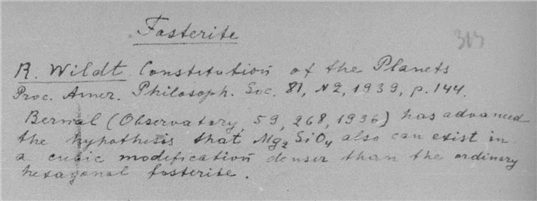 Fosterite
313
R. Wildt Constitution of the Planets
Proc. Amer. Philosoph. Soc. 81, N2, 1939, p. 144.
Bernal (Observatory 59, 268, 1936) has advanced
the hypothesis that Mg₂SiO₄ also can exist in
a cubic modification denser than the ordinary
hexagonal fosterite.